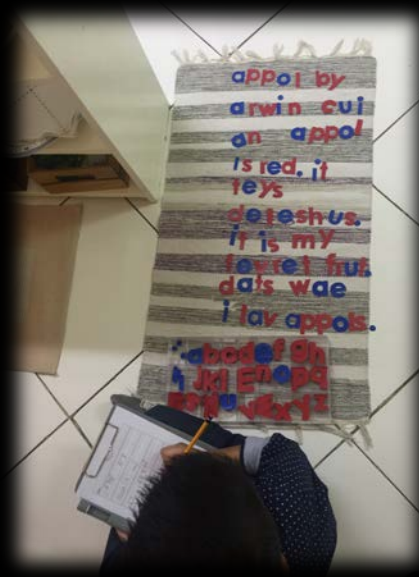 appol by
arwin cui
an appol
is red. it
teys
deleshus.
it is my
fevret frut.
dats wae
i lav appols.
abcdefgh
ijklEnopq